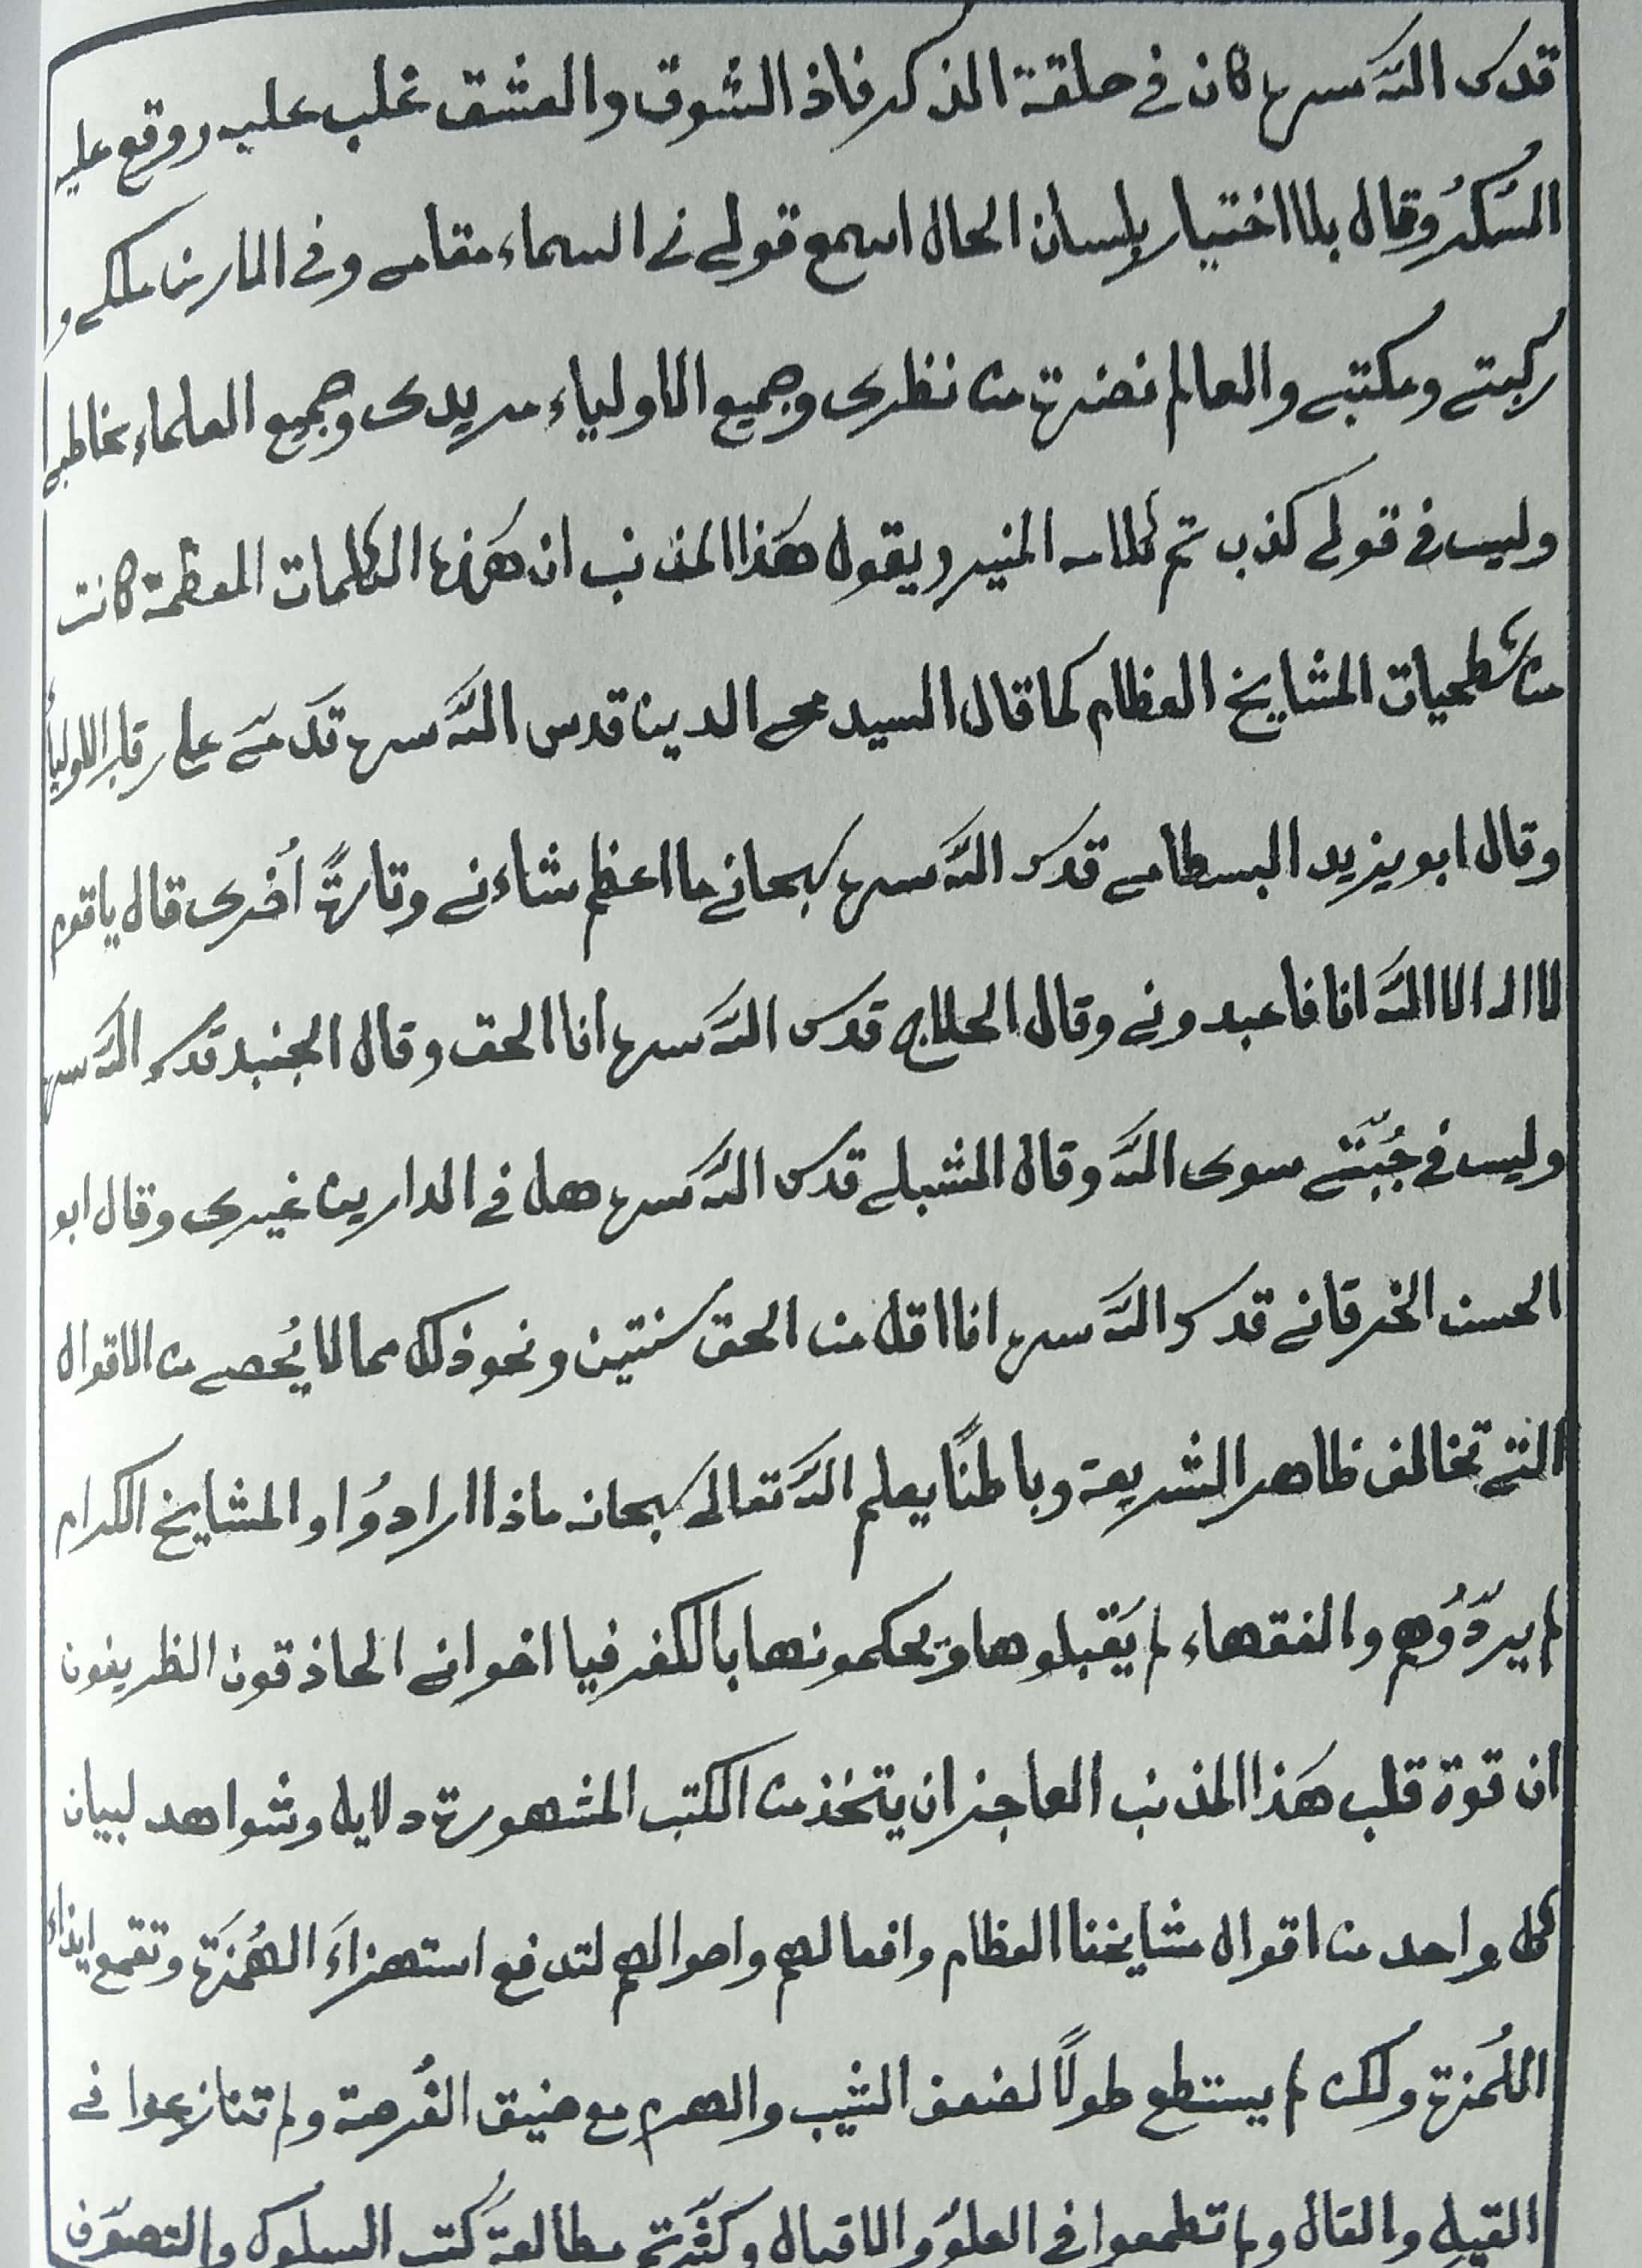 قدس اللّه سره كان فى حلقة الذكر فاذ الشوق والعشق غلب عليه ووقع عليه
السُّكرُ وقال بلا اختيار بلسان الحال اسمع قولى فى السماء مقامى وفى الارض ملكى و
ركبتى ومكتبى والعالم نضرة من نظرى وجميع الاولياء مريدى وجميع العلماء مخاطبى
وليس فى قولى كذب تم كلامه المنير ويقول هَذا المذنب ان هَذه الكلمات المعظمة كانت
من شطحيات المشايخ العظام كما قال السيد محى الدين قدس اللّه سره قَدَمىَ على رقاب الاولياء
وقال ابويزيد البسطامى قدس اللّه سره سبحانى ما اعظم شاءنى وتارةً اُخرى قال ياقوم
لا اله الا اللّه انا فاعبدونى وقال الحلاج قدس اللّه سره انا الحق وقال الجنيد قدس اللّه سره
وليس فى جُبَّتى سوى اللّه وقال الشبلى قدس اللّه سره هل فى الدارين غيرى وقال ابو
الحسن الخرقانى قدس اللّه سره انا اقل من الحق سنتين ونحو ذلك مما لا يُحصى من الاقوال
التى تخالف ظاهر الشريعة وباطنًا يعلم اللّه تعالى سبحانه ماذا ارادوُا والمشايخ الكرام
لم يردّوُهم والفقهاء لم يَقبلوها ويحكمونها بالكفر فيا اخوانى الحاذقون الظريفون
ان قوة قلب هَذا المذنب العاجز ان يتخذ من الكتب المشهورة دلايل وشواهد لبيان
كل واحد من اقوال مشايخنا العظام وافعالهم واحوالهم لتدفع استهزاءَ الهُمَزة وتقمع ايذاء
اللُمزة ولكن لم يستطع طولًا لضعف الشيب والهرم مع ضيق الفُرصة ولم تنازعوا فى
القيل والقال ولم تطمعوا فى العلوّ والاقبال وكَثَّرتم مطالعةَ كُتب السلوك والتصوّف